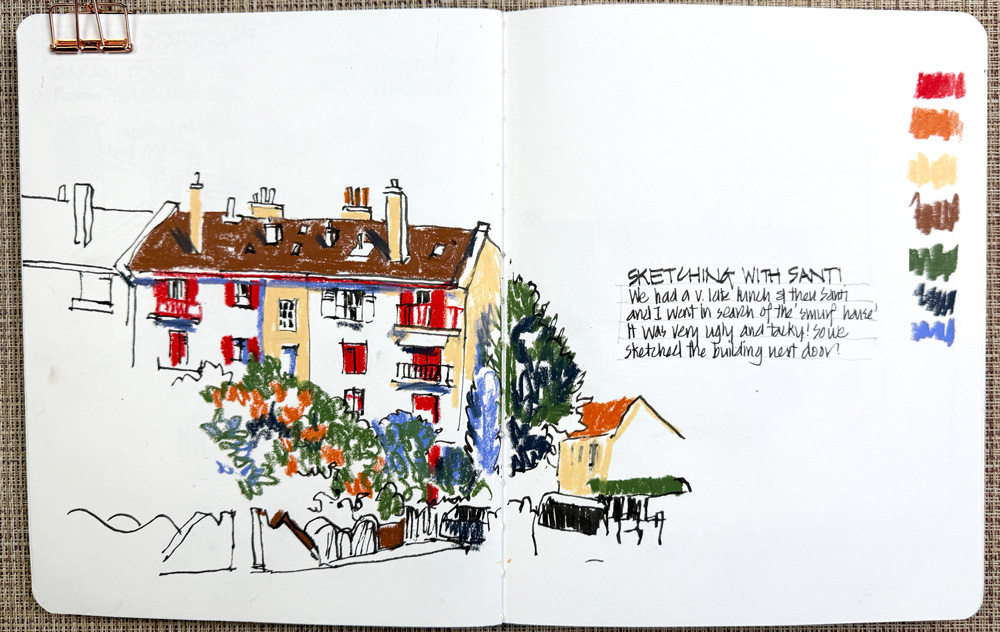 SKETCHING WITH SANTI
We had a v. late lunch & then Santi
and I went in search of the 'smurf house'
It was very ugly and tacky! So we
sketched the building next door!